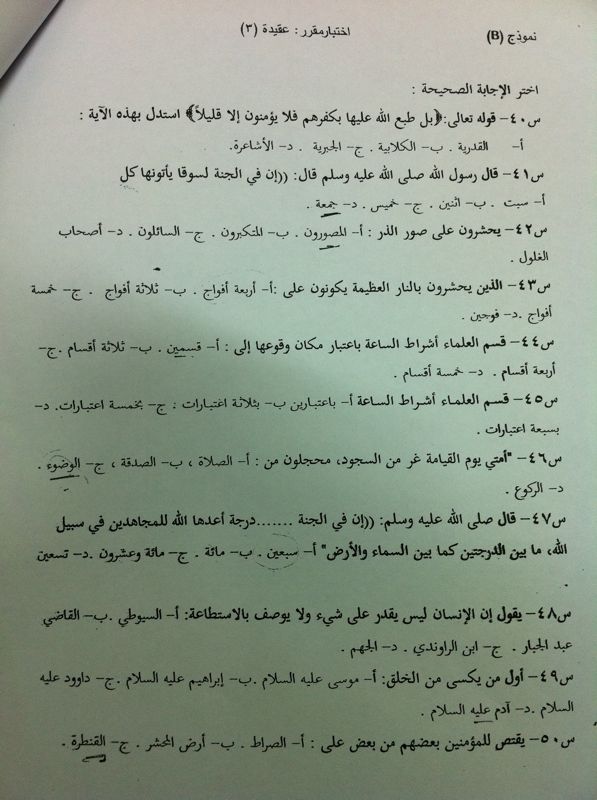 نموذج (B)
اختبار مقرر : عقيدة (٣)
اختر الإجابة الصحيحة :
س٤٠- قوله تعالى:﴿بل طبع الله عليها بكفرهم فلا يؤمنون إلا قليلاً﴾ استدل بهذه الآية :
أ- القدرية . ب- الكلابية . ج- الجبرية . د- الأشاعرة.
س٤١- قال رسول الله صلى الله عليه وسلم قال: ((إن في الجنة لسوقا يأتونها كل
أ- سبت . ب- اثنين . ج- خميس . د- جمعة .
س٤٢- يحشرون على صور الذر : أ- المصورون . ب- المتكبرون . ج- السائلون . د- أصحاب
الغلول .
س٤٣- الذين يحشرون بالنار العظيمة يكونون على :أ- أربعة أفواج . ب- ثلاثة أفواج . ج- خمسة
أفواج .د- فوجين .
س٤٤- قسم العلماء أشراط الساعة باعتبار مكان وقوعها إلى : أ- قسمين . ب- ثلاثة أقسام .ج-
أربعة أقسام . د- خمسة أقسام .
س٤٥- قسم العلماء أشراط الساعة أ- باعتبارين ب- بثلاثة اعتبارات : ج- بخمسة اعتبارات. د-
بسبعة اعتبارات .
س٤٦- "أمتي يوم القيامة غر من السجود، محجلون من : أ- الصلاة ، ب- الصدقة ، ج- الوضوء .
د- الركوع .
س٤٧- قال صلى الله عليه وسلم: ((إن في الجنة .......درجة أعدها الله للمجاهدين في سبيل
الله، ما بين الدرجتين كما بين السماء والأرض" أ- سبعين . ب- مائة . ج- مائة وعشرون .د- تسعين
س٤٨- يقول إن الإنسان ليس يقدر على شيء ولا يوصف بالاستطاعة: أ- السيوطي . ب- القاضي
عبد الجبار . ج- ابن الراوندي . د- الجهم .
س٤٩- أول من يكسى من الخلق: أ- موسى عليه السلام .ب- إبراهيم عليه السلام .ج- داوود عليه
السلام .د- آدم عليه السلام .
س٥٠- يقتص للمؤمنين بعضهم من بعض على : أ- الصراط . ب- أرض المحشر . ج- القنطرة .